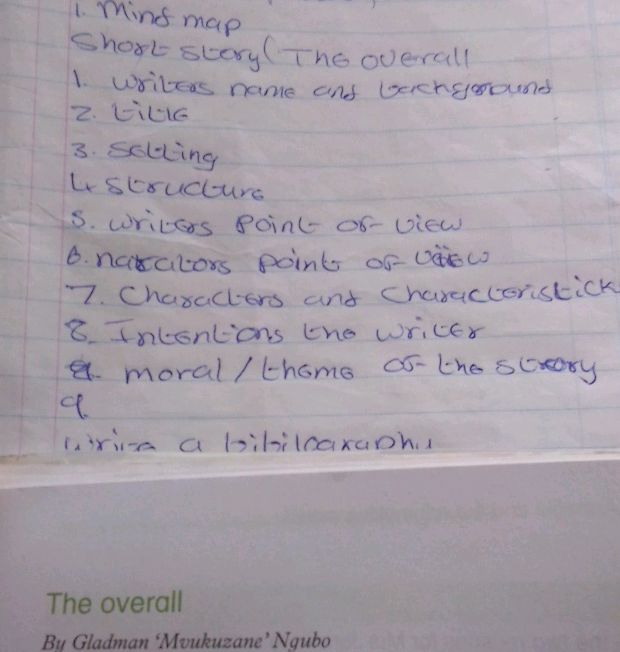 1. Mind map
Short story( The overall
1. writers name and background
2. title
3. Setting
4. Structure
5. writers point of view
6. narrators point of view
7. Characters and Characteristick
8. Intentions the writer
moral / theme of the story
9
write a bibilography
The overall
By Gladman ‘Mvukuzane’ Ngubo